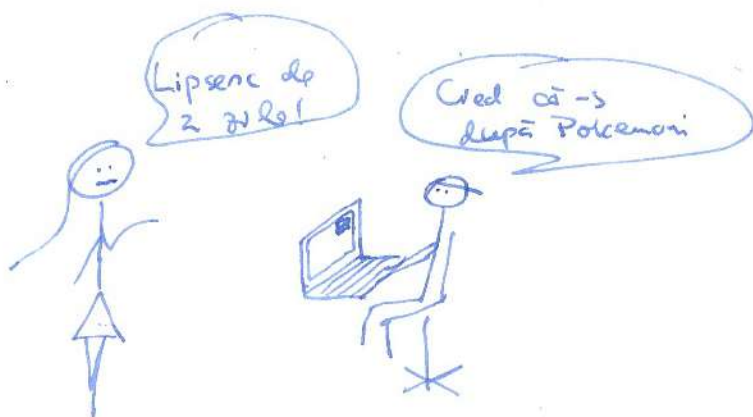 Lipsesc de
2 zile!
Cred că-s
după Pokemoni